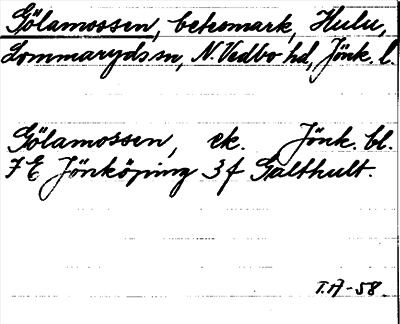 Gölamossen, betesmark, Hulu,
Lommaryds sn, N. Vedbo hd, Jönk. l.
Gölamossen, ek. Jönk. bl.
7 E Jönköping 3 f Galthult.
T.A-58